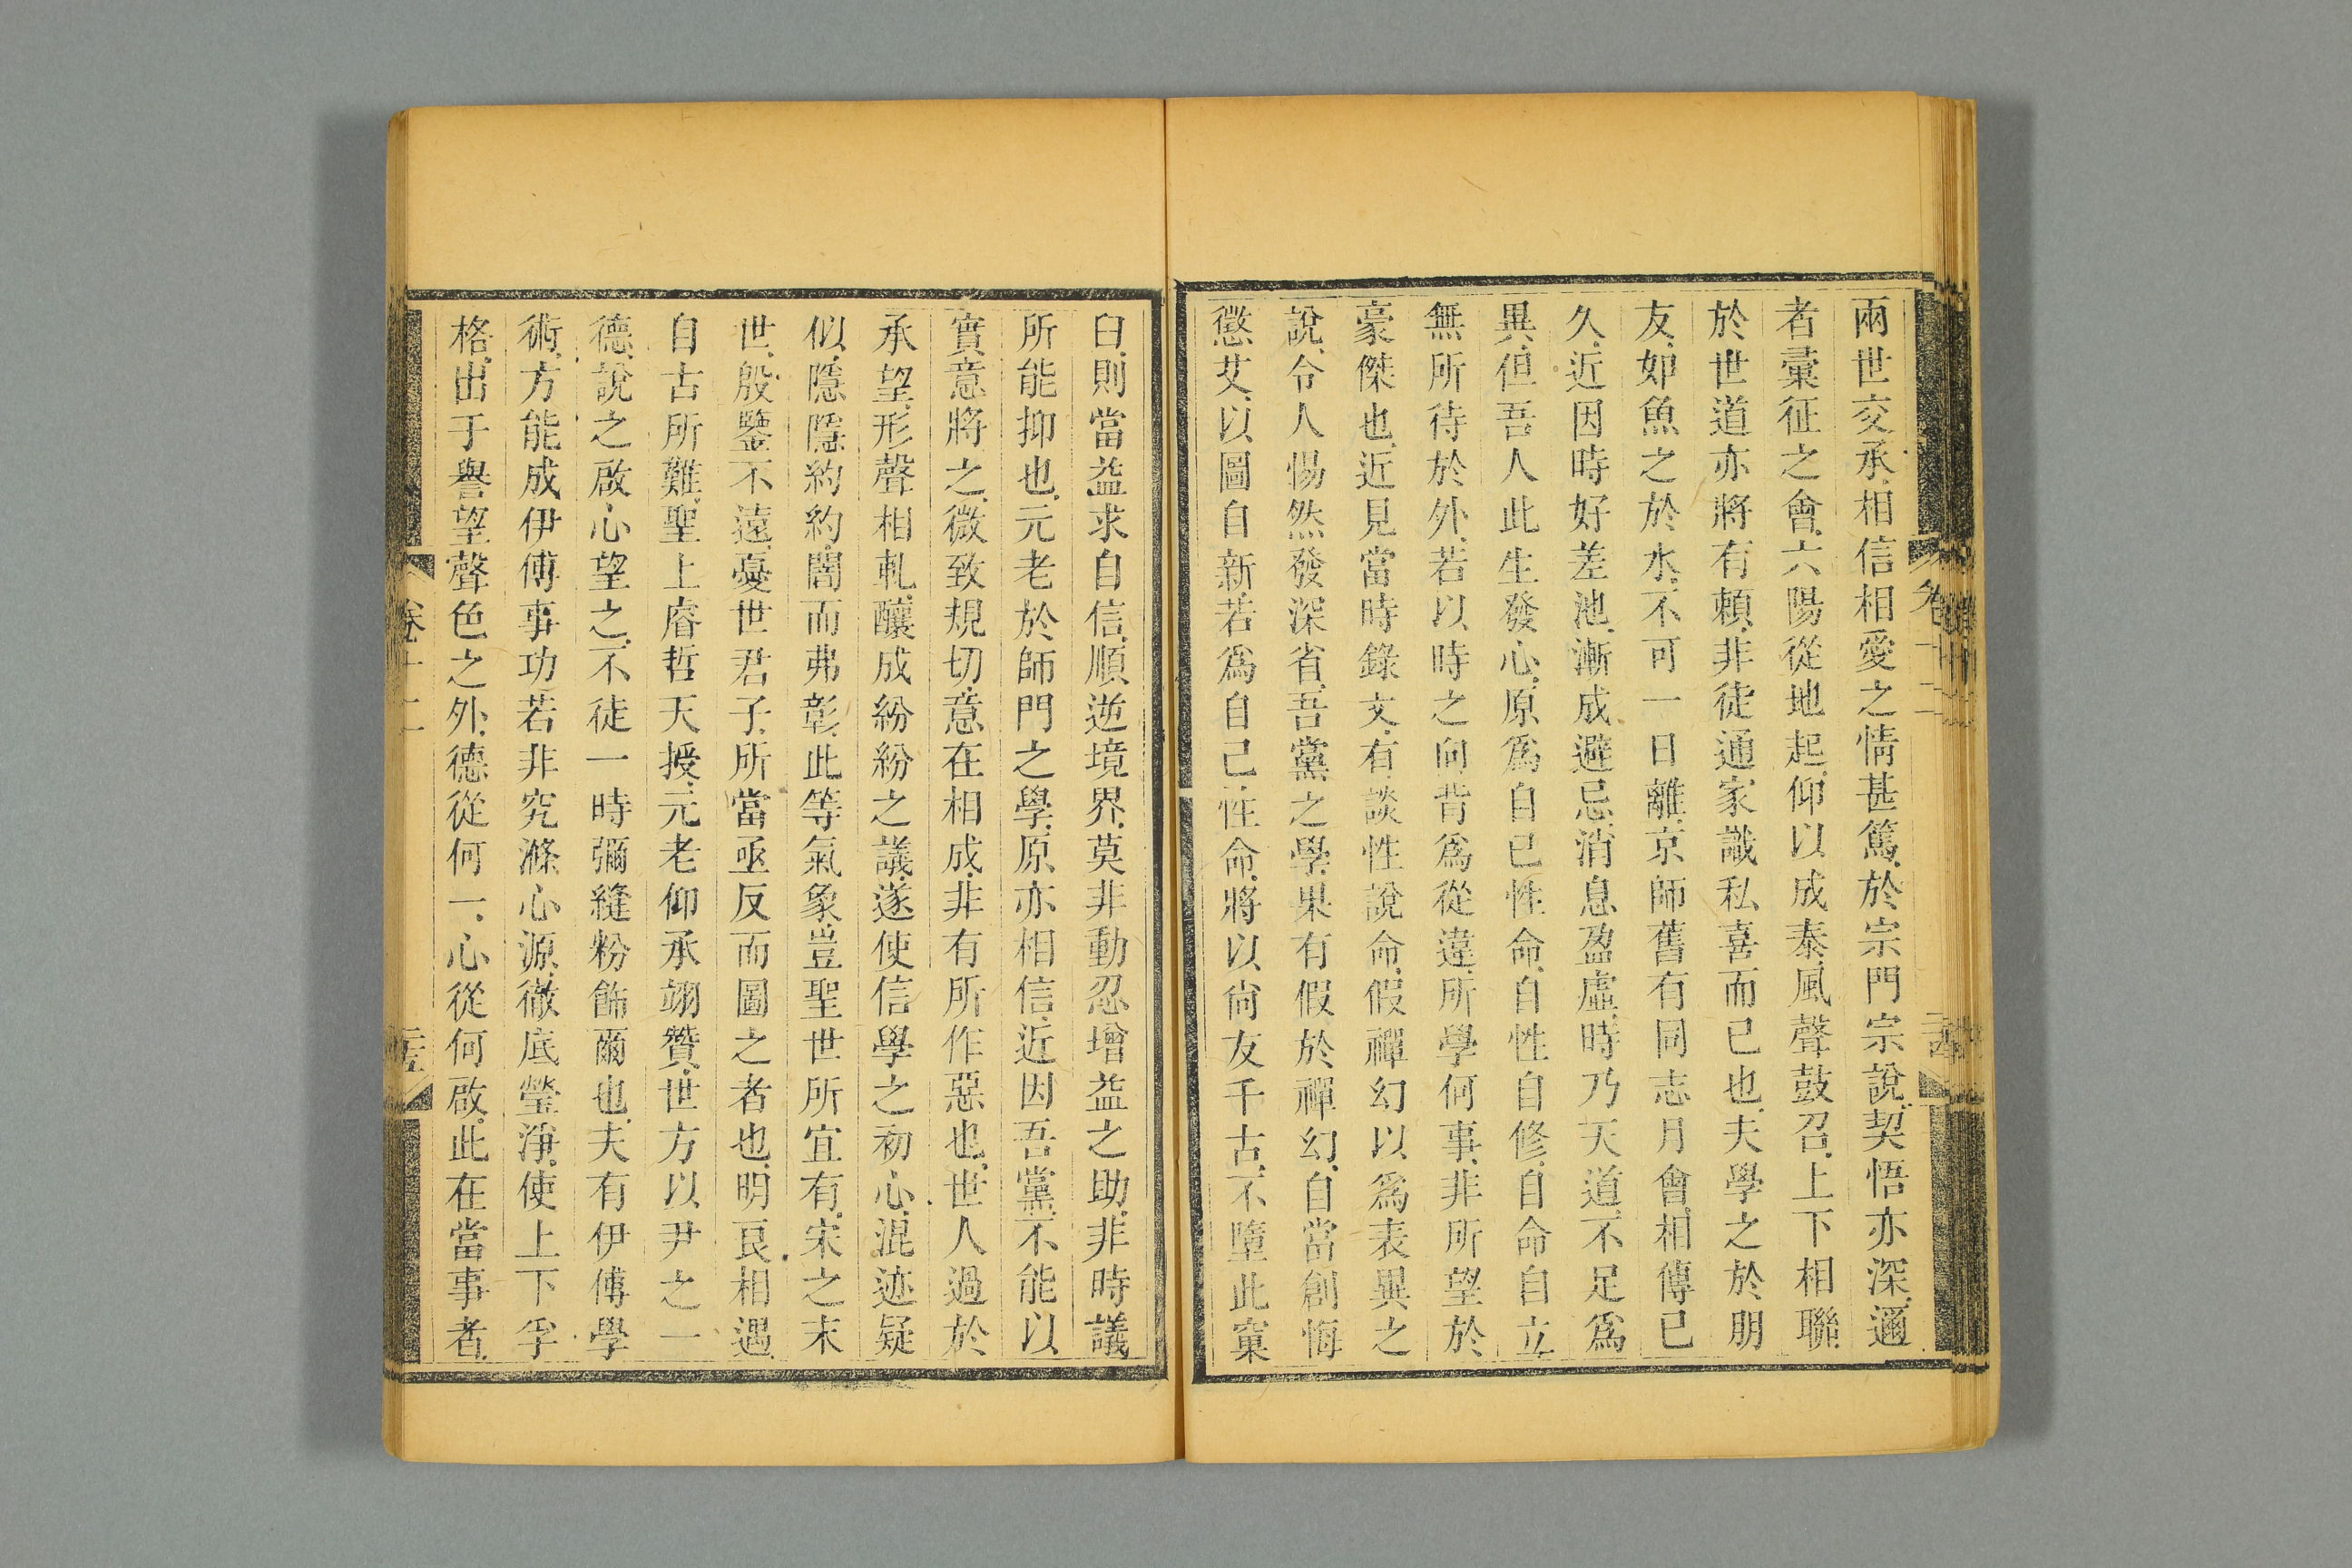 兩世交承、相信相愛之情甚篤、於宗門宗說、契悟亦深、邇
者彙征之會、六陽從地起、仰以成泰、風聲鼓召、上下相聯、
於世道亦將有賴、非徒通家識私喜而已也、夫學之於朋
友、如魚之於水、不可一日離、京師舊有同志月會、相傳已
久、近因時好差池、漸成避忌、消息盈虛、時乃天道、不足爲
異、但吾人此生發心、原爲自已性命、自性自修、自命自立、
無所待於外、若以時之向背爲從違、所學何事、非所望於
豪傑也、近見當時錄文、有談性說命、假禪幻以爲表異之
說、令人惕然發深省、吾黨之學、果有假於禪幻、自當創悔
懲艾、以圖自新、若爲自己性命、將以尙友千古、不墮此窠
臼、則當益求自信、順逆境界、莫非動忍增益之助、非時議
所能抑也、元老於師門之學、原亦相信、近因吾黨、不能以
實意將之、微致規切、意在相成、非有所作惡也、世人過於
承望、形聲相軋、釀成紛紛之議、遂使信學之初心、混迹疑
似、隱隱約約、闇而弗彰、此等氣象、豈聖世所宜有、宋之末
世、殷鑒不遠、憂世君子、所當亟反而圖之者也、明良相遇、
自古所難、聖上睿哲天授、元老仰承翊贊、世方以尹之一
德、說之啟心望之、不徒一時彌縫粉飾爾也、夫有伊傅學
術、方能成伊傅事功、若非究滌心源、徹底瑩淨、使上下孚
格、出于譽望聲色之外、德從何一、心從何啟、此在當事者、
卷十二
二十五